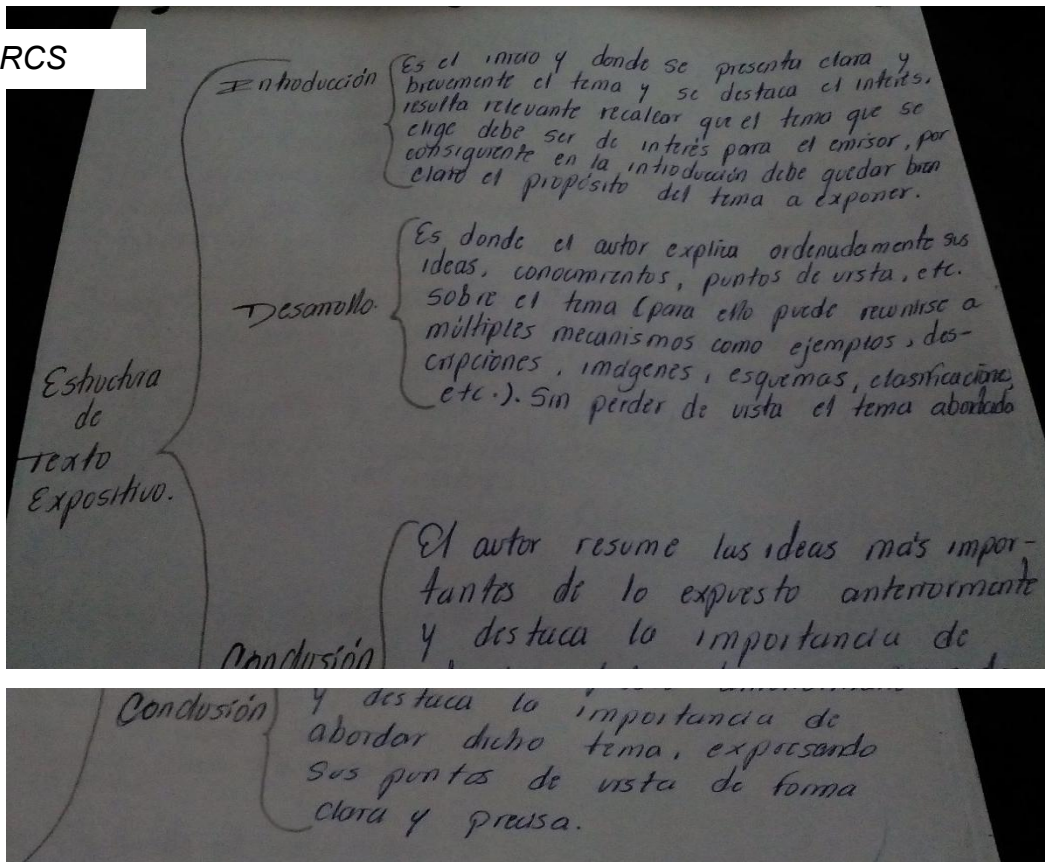 RCS
Introducción
Es el inicio y donde se presenta clara y
brevemente el tema y se destaca el interés.
resulta relevante recalcar que el tema que se
elige debe ser de interés para el emisor, por
consiguiente en la introducción debe quedar bien
claro el propósito del tema a exponer.
Desarrollo.
Es donde el autor explica ordenadamente sus
ideas, conocimientos, puntos de vista, etc.
sobre el tema (para ello puede recurrirse a
múltiples mecanismos como ejemplos, des-
cripciones, imágenes, esquemas, clasificacione,
etc.). Sin perder de vista el tema abordado
Estructura
de
Texto
Expositivo.
Conclusión
El autor resume las ideas más impor-
tantes de lo expuesto anteriormente
y destaca la importancia de
Conclusión
y destaca la importancia de
abordar dicho tema, expresando
sus puntos de vista de forma
clara y precisa.